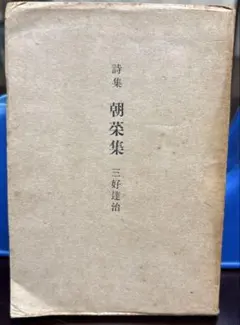 詩集
朝菜集
三好達治